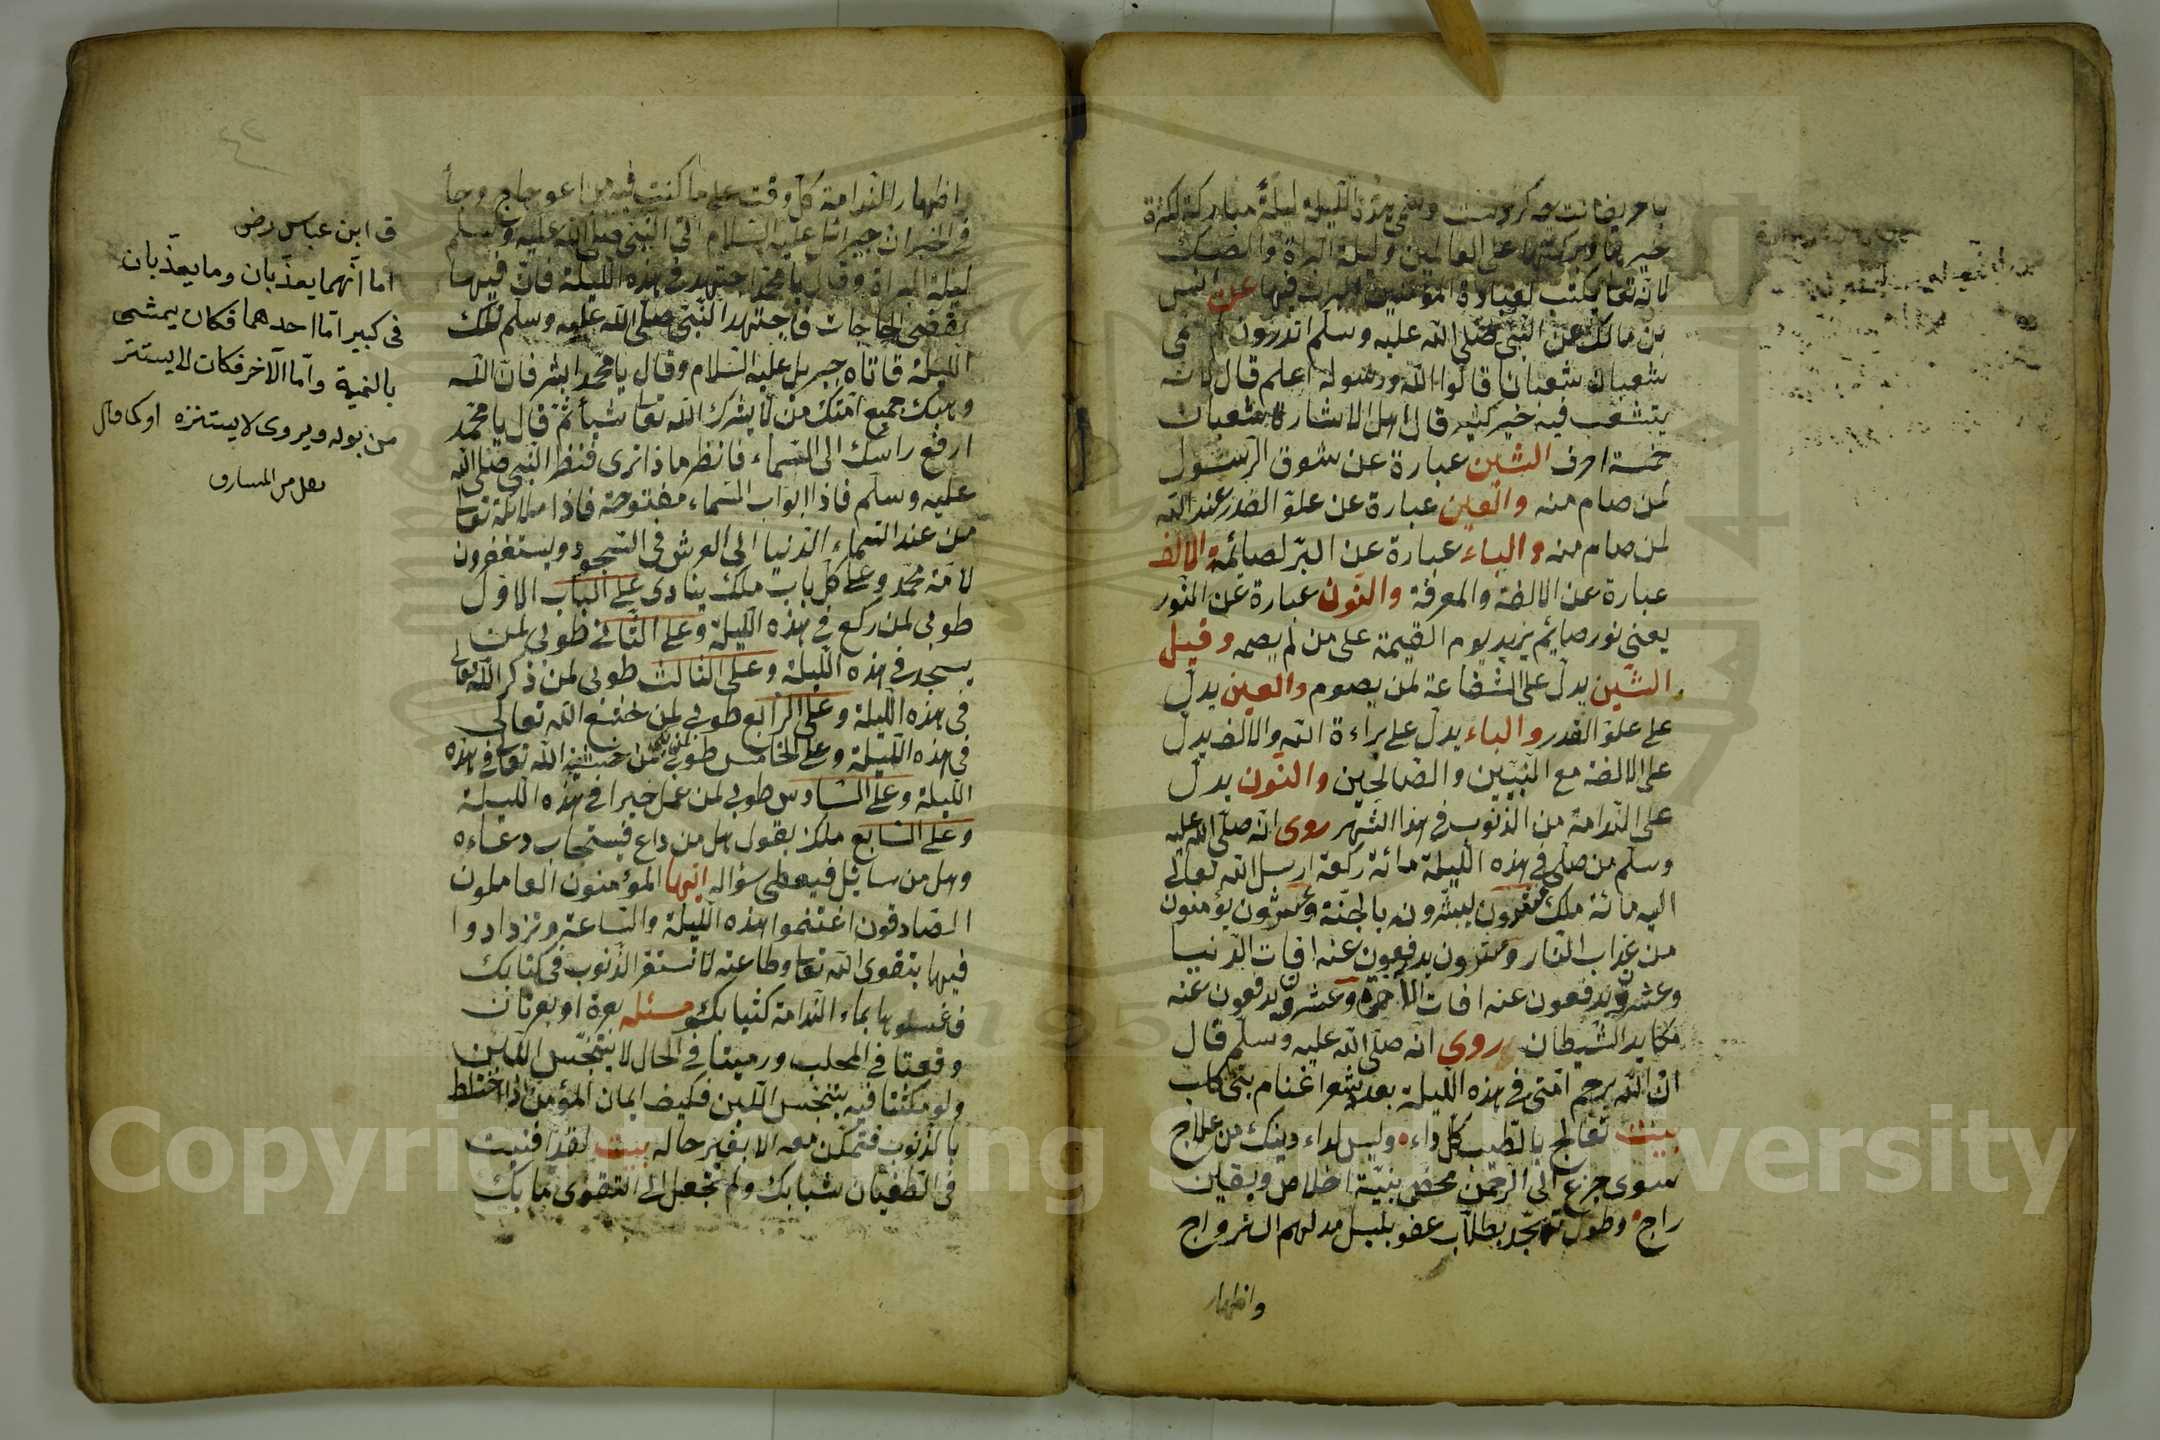 وسمى هذه الليلة ليلة مباركة لكثرة
خيرها وبركتها على العالمين وليلة البراة والصك
لانه تعا يكتب لعباده المؤمنين البراة فيها عن انس
بن مالك عن النبي صلى الله عليه وسلم اتدرون لم سمى
شعبان شعبان قالوا الله ورسوله اعلم قال لانه
يتشعب فيه خير كثير قال اهل الاشارة شعبان
خمسة احرف الشين عبارة عن شوق الرسول
لمن صام منه والعين عبارة عن علو القدر عند الله
لمن صام منه والباء عبارة عن البر لصائمه الالف
عبارة عن الالفة والمعرفة والنون عبارة عن النور
يعنى نور صايم يزيد يوم القيمة على من لم يصمه وقيل
الشين يدل على الشفاعة لمن يصوم والعين يدل
على علو القدر والباء يدل على براءة الله والالف يدل
على الالفة مع النبيين والصالحين والنون يدل
على الندامة من الذنوب فى هذا الشهر روى انه صلى الله عليه
وسلم من صلى فى هذه الليلة مائة ركعة ارسل الله تعالى
اليه مائة ملك يبشرونه بالجنة وعشرون يؤمنون
من عذاب النار وعشرون يدفعون عنه افات الدنيا
وعشرون يدفعون عنه افات الاخرة وعشرون يدفعون عنه
مكايد الشيطان روى انه صلى الله عليه وسلم قال
ان الله يرحم امتى فى هذه الليلة بعدد شعر اغنام بنى كلب
بيت تعالج بالطب كل داء وليس لداء دينك من علاج
سوى جزع الى الرحمن محض بنية اخلاص ويقين
راج وطول تهجد بطلاب عفو بليل مدلهم الستر داج
واظهار
واظهار الندامة كل وقت على ما كنت فيه من اعوجاج وجأ
فى الخبر ان جبرائيل عليه السلام اتى النبى صلى الله عليه وسلم
ليلة البراة وقال يا محمد اجتهد فى هذه الليلة فان فيها
يقضى الحاجات فاجتهد النبى صلى الله عليه وسلم تلك
الليلة فاتاه جبريل عليه السلام وقال يا محمد ابشر فان الله
وهبك جميع امتك من لا يشرك الله تعا شيأ ثم قال يا محمد
ارفع راسك الى السماء فانظر ماذا ترى فنظر النبى صلى الله
عليه وسلم فاذا ابواب السماء مفتوحة فاذا ملائكة تعا
من عند السماء الدنيا الى العرش فى السجود ويستغفرون
لامة محمد وعلى كل باب ملك ينادى على الباب الاول
طوبى لمن ركع فى هذه الليلة وعلى الثانى طوبى لمن
يسجد فى هذه الليلة وعلى الثالث طوبى لمن ذكر الله تعالى
فى هذه الليلة وعلى الرابع طوبى لمن خشع الله تعالى
فى هذه الليلة وعلى الخامس طوبى لمن بكى من خشية الله تعا فى هذه
الليلة وعلى السادس طوبى لمن عمل خيرا فى هذه الليلة
وعلى السابع ملك يقول هل من داع فيستجاب دعاءه
وهل من سائل فيعطى سؤاله ايها المؤمنون العاملون
الصادقون اغتنموا هذه الليلة والساعة وتزدادوا
فيها بتقوى الله تعا وطاعته لا تستقر الذنوب فى كتابك
فاغسلوها بماء الندامة كثيابك مسئلة بعرة او بعرتان
وقعتا فى المحلب ورميتا فى الحال لا يتنجس اللبن
ولو مكثتا فيه يتنجس اللبن فكيف ايمان المؤمن اذا اختلط
بالذنوب فتمكن معه الا بغير حاله بيت لقد افنيت
فى الطغيان شبابك ولم تجعل الى التقوى مابك
ق ابن عباس رض
اما انهما يعذبان وما يعذبان
فى كبير اما احدهما فكان يمشى
بالنميمة واما الآخر فكان لا يستتر
من بوله ويروى لا يستنزه او كما قال
نقل من المشارق